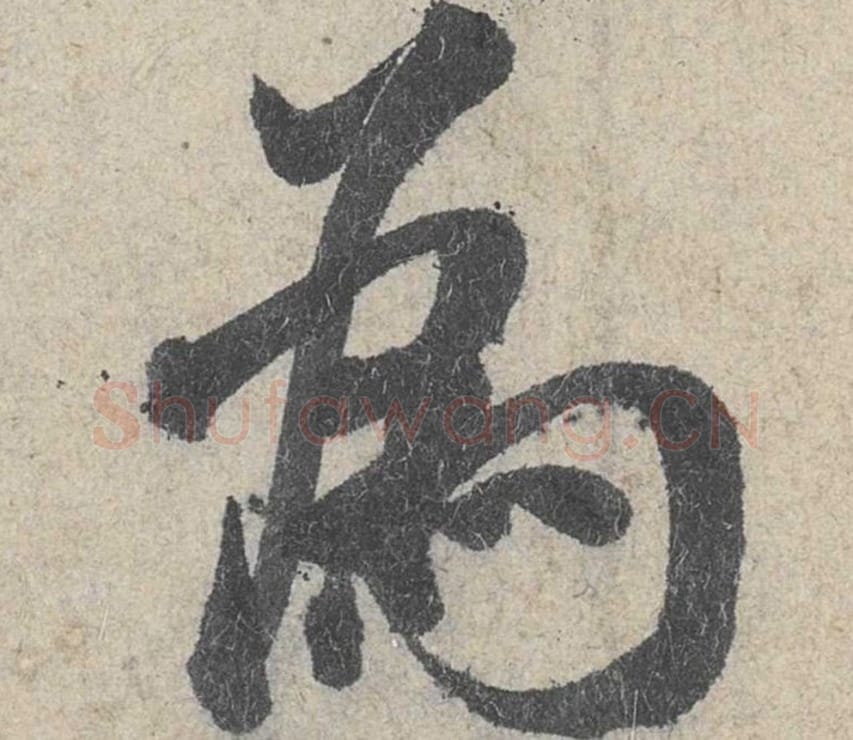 為
Shufawang.CN